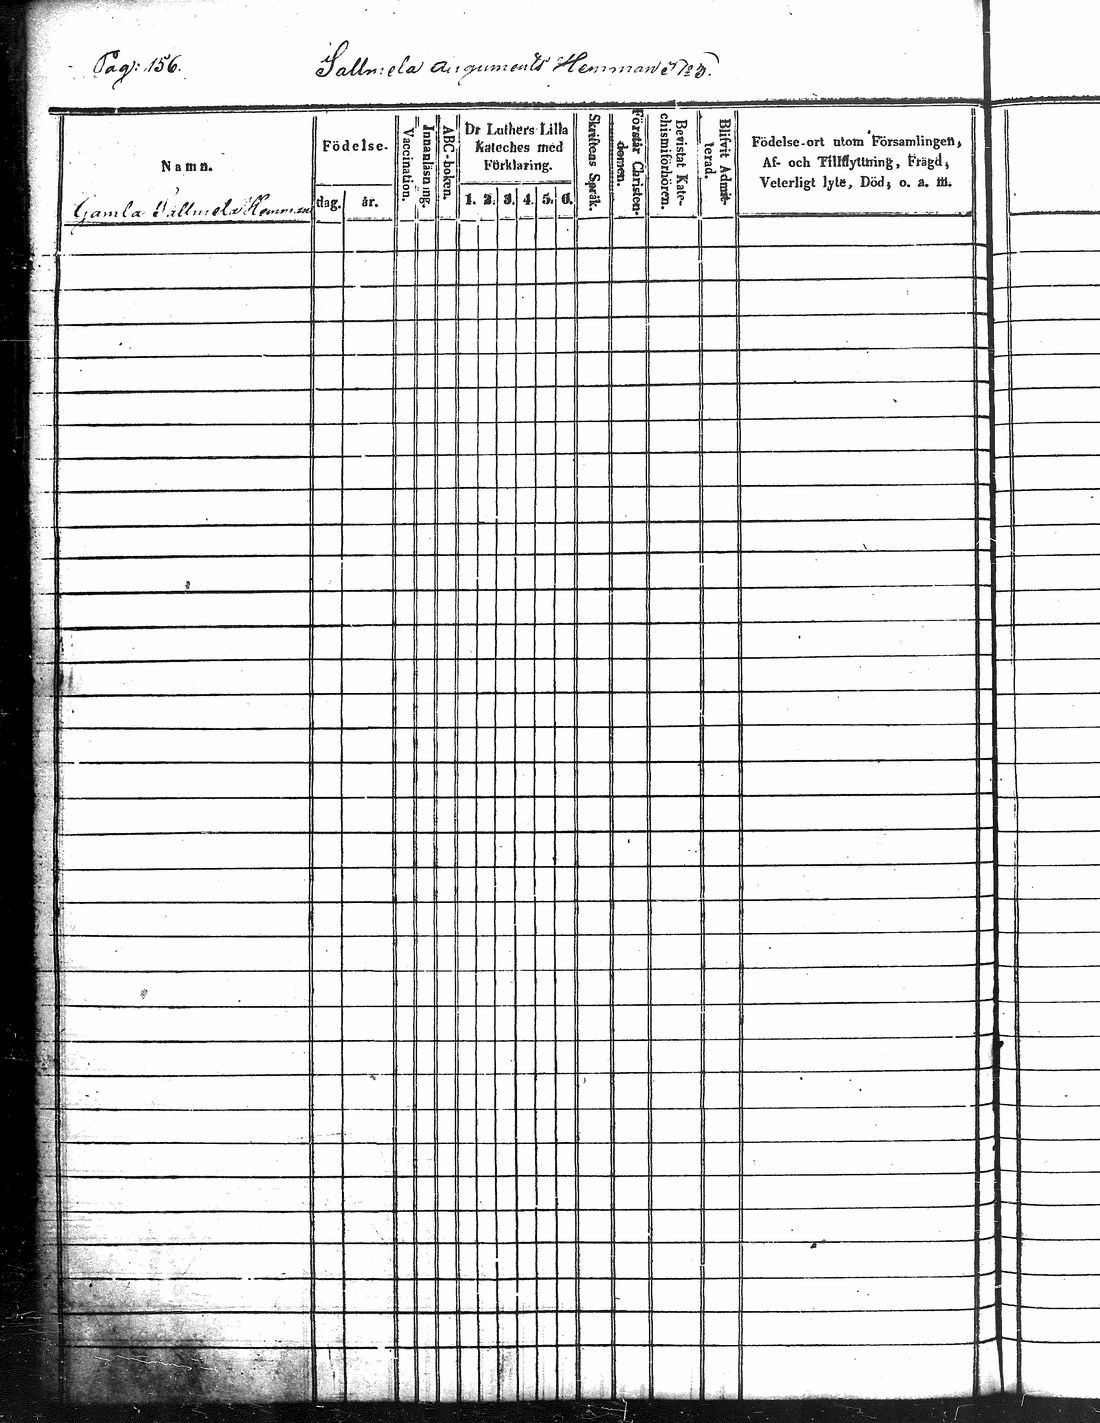 Pag: 156.
Sallmela Hemman
Namn.
Gamla Sallmela Hemman
Födelse.
dag.
år.
Vaccination.
Innanläsning.
ABC-boken.
Dr Luthers Lilla
Kateches med
Förklaring.
1. 2. 3. 4. 5. 6.
Skriftens Språk.
Förstår Christen-
domen.
Bevistat Kate-
chismiförhören.
Blifvit Admit-
terad.
Födelse-ort utom Församlingen,
Af- och Tillflyttning, Frägd,
Veterligt lyte, Död, o. a. m.